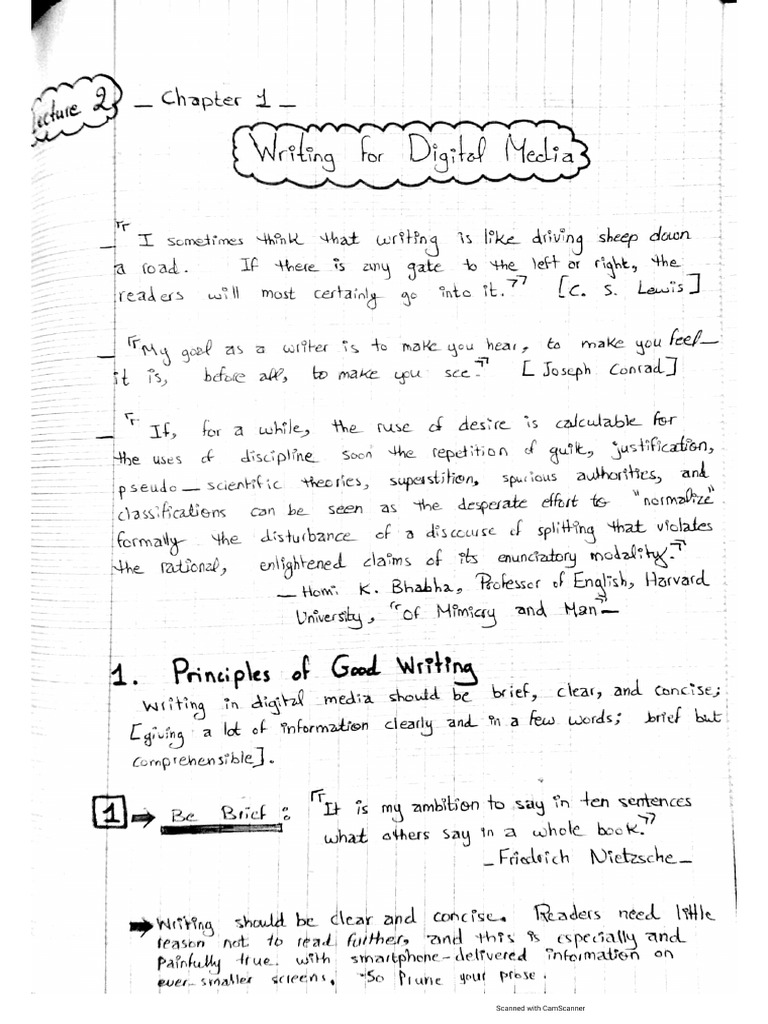 Lecture 2
_ Chapter 1 _
Writing for Digital Media
_ "I sometimes think that writing is like driving sheep down
a road. If there is any gate to the left or right, the
readers will most certainly go into it." [C. S. Lewis]
_ "My goal as a writer is to make you hear, to make you feel_
it is, before all, to make you see." [Joseph Conrad]
_ "If, for a while, the ruse of desire is calculable for
the uses of discipline soon the repetition of guilt, justification,
pseudo_scientific theories, superstition, spurious authorities, and
classifications can be seen as the desperate effort to "normalize"
formally the disturbance of a discouse of splitting that violates
the rational, enlightened claims of its enunciatory modality."
_ Homi K. Bhabha, Professor of English, Harvard
University, "Of Mimicry and Man"_
1. Principles of Good Writing
Writing in digital media should be brief, clear, and concise;
[giving a lot of information clearly and in a few words; brief but
comprehensible].
1 → Be Brief: "It is my ambition to say in ten sentences
what others say in a whole book."
_Friedrich Nietzsche_
→ Writing should be clear and concise. Readers need little
reason not to read further, and this is especially and
painfully true with smartphone-delivered information on
ever-smaller screens. So Prune your prose.
Scanned with CamScanner